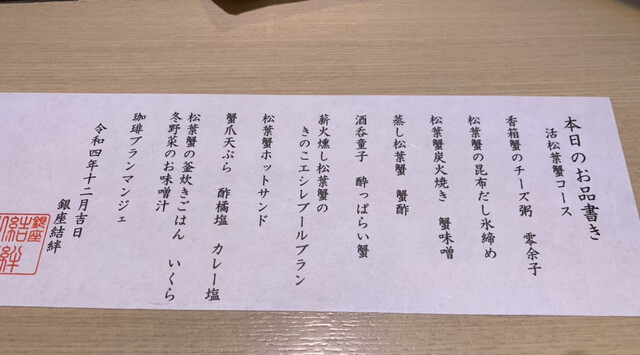 本日のお品書き
活松葉蟹コース
香箱蟹のチーズ粥　零余子
松葉蟹の昆布だし氷締め
松葉蟹炭火焼き　蟹味噌
蒸し松葉蟹　蟹酢
酒呑童子　酔っぱらい蟹
薪火燻し松葉蟹の
きのこエシレブールブラン
松葉蟹ホットサンド
蟹爪天ぷら　酢橘塩　カレー塩
松葉蟹の釜炊きごはん　いくら
冬野菜のお味噌汁
珈琲ブランマンジェ
令和四年十二月吉日
銀座結絆
銀座
結絆